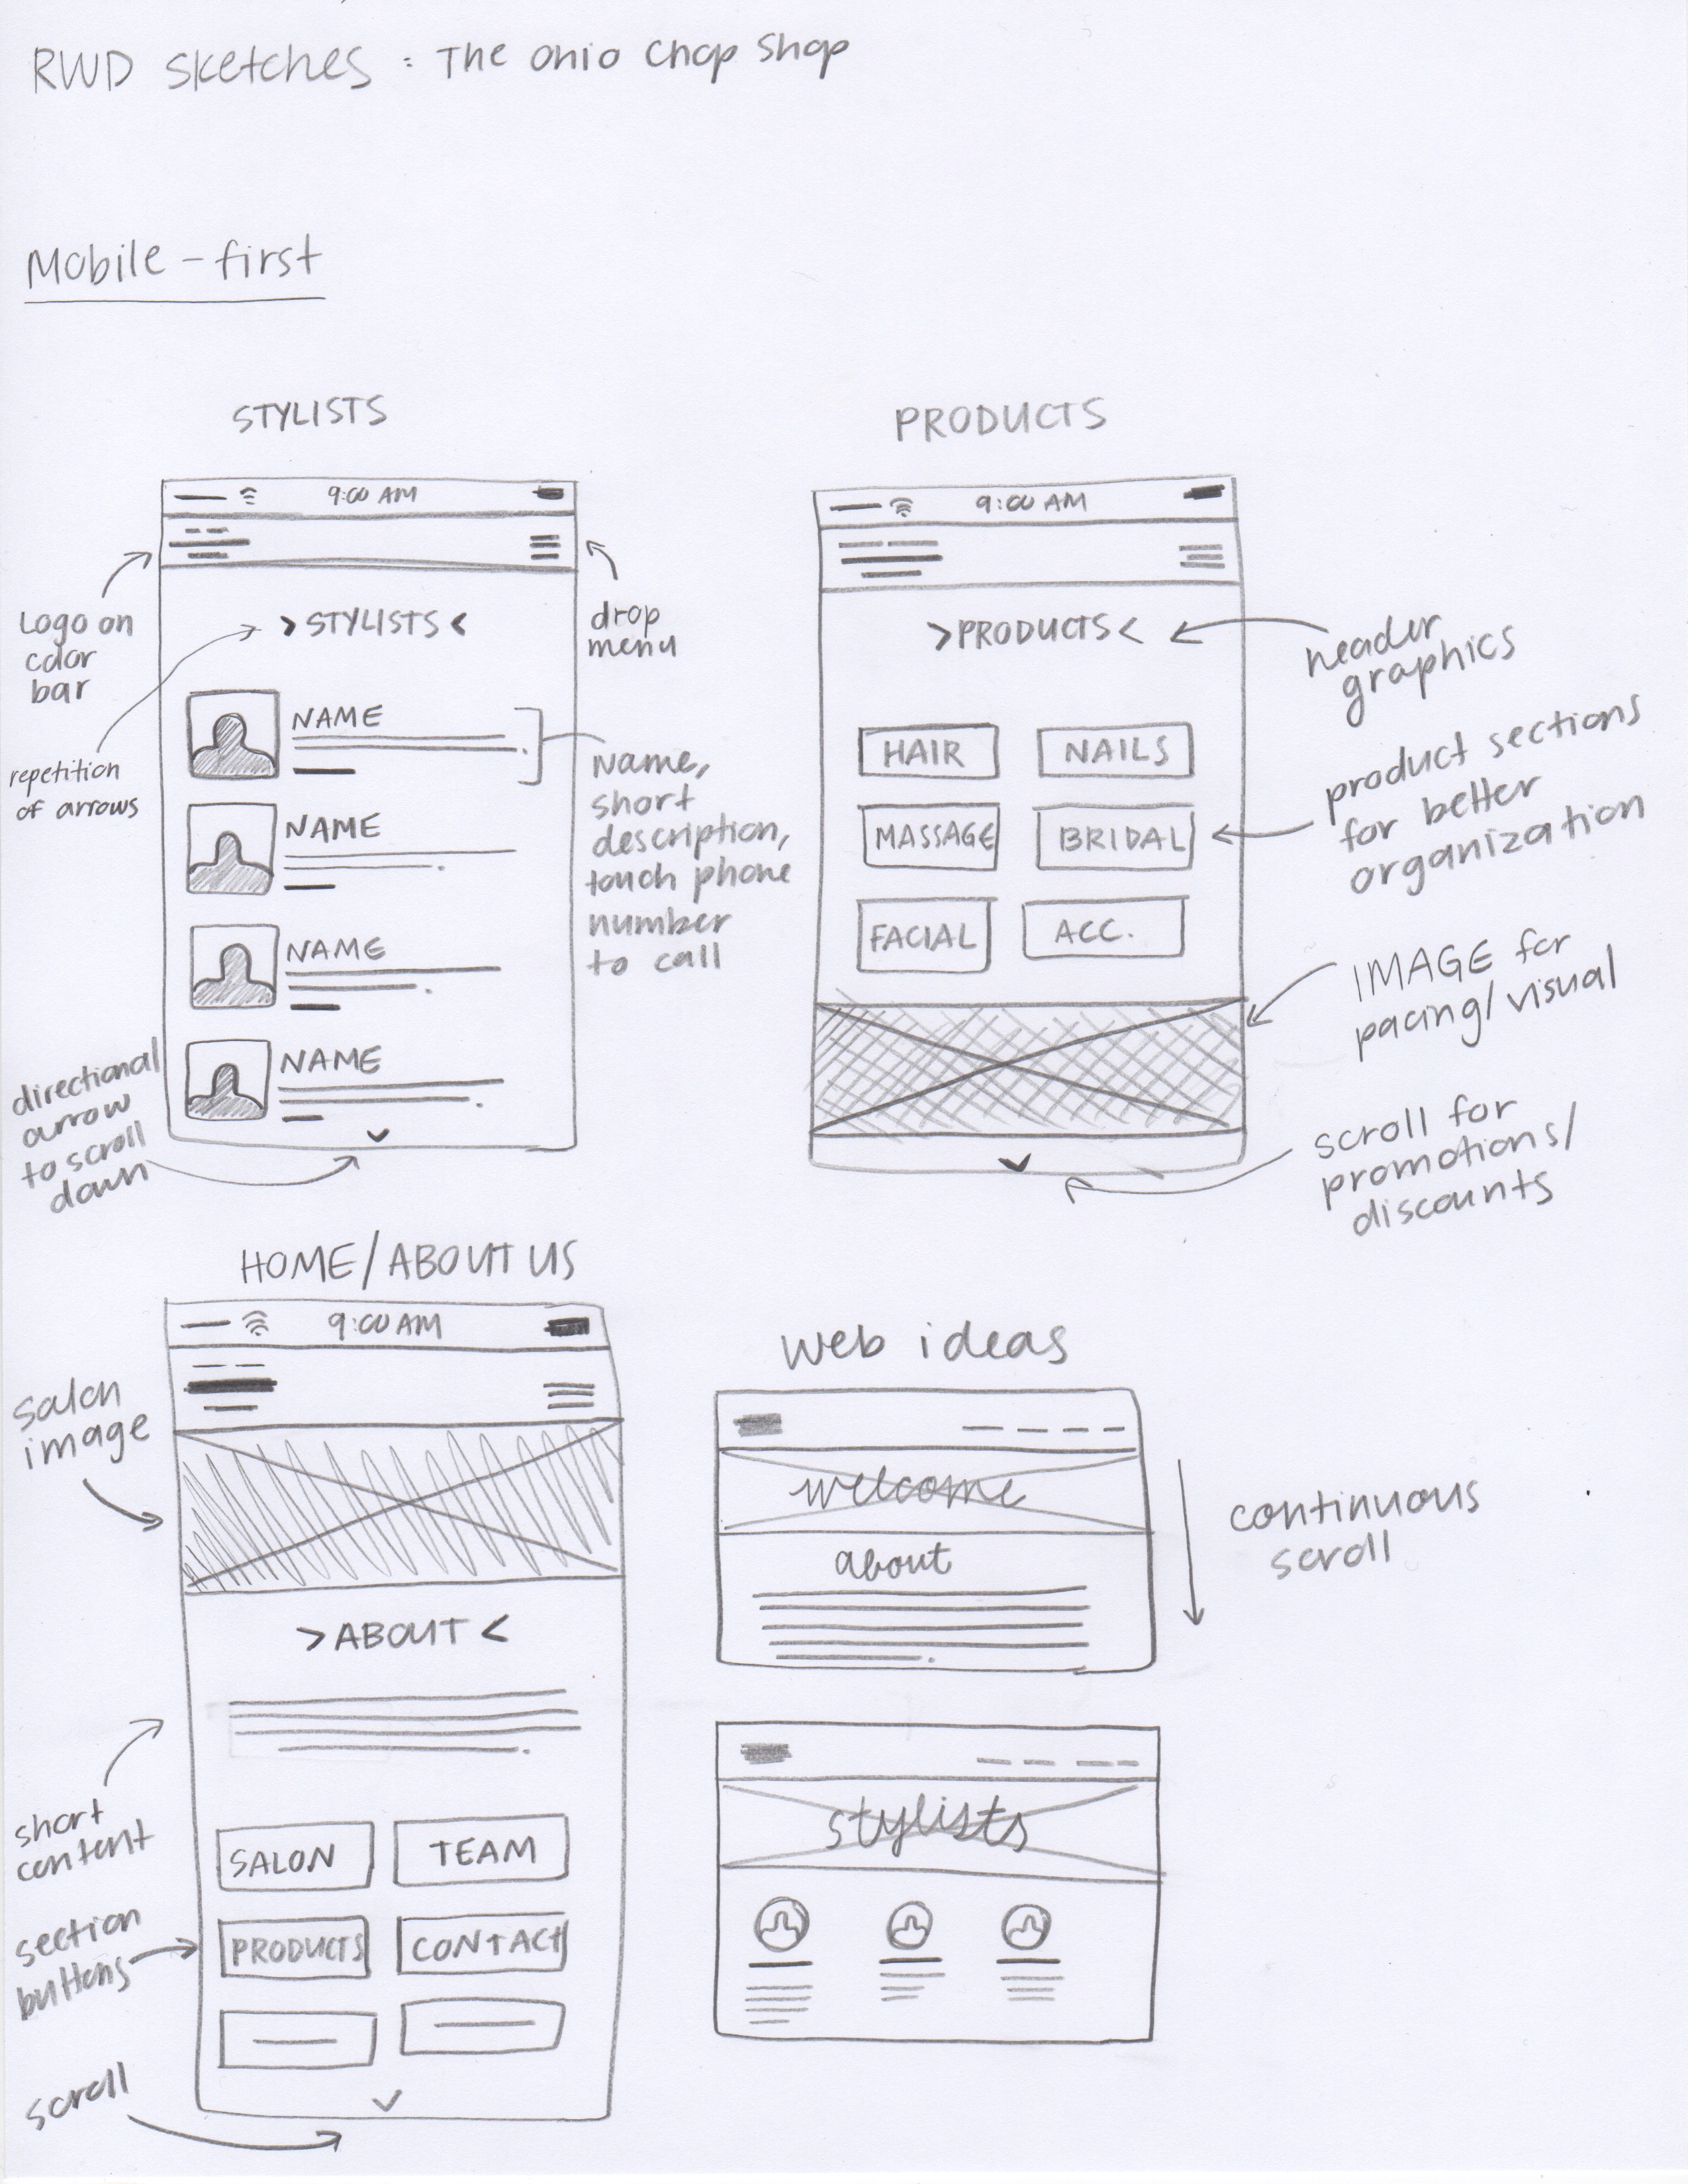 RWD sketches : The Ohio Chop Shop
Mobile-first
STYLISTS
9:00 AM
Logo on
color
bar
drop
menu
>STYLISTS<
repetition
of arrows
NAME
NAME
NAME
NAME
Name,
short
description,
touch phone
number
to call
directional
arrow
to scroll
down
PRODUCTS
9:00 AM
>PRODUCTS<
header
graphics
HAIR
NAILS
MASSAGE
BRIDAL
FACIAL
ACC.
product sections
for better
organization
IMAGE for
pacing/visual
scroll for
promotions/
discounts
HOME/ABOUT US
9:00 AM
salon
image
>ABOUT<
short
content
SALON
TEAM
PRODUCTS
CONTACT
section
buttons
scroll
web ideas
welcome
about
continuous
scroll
stylists